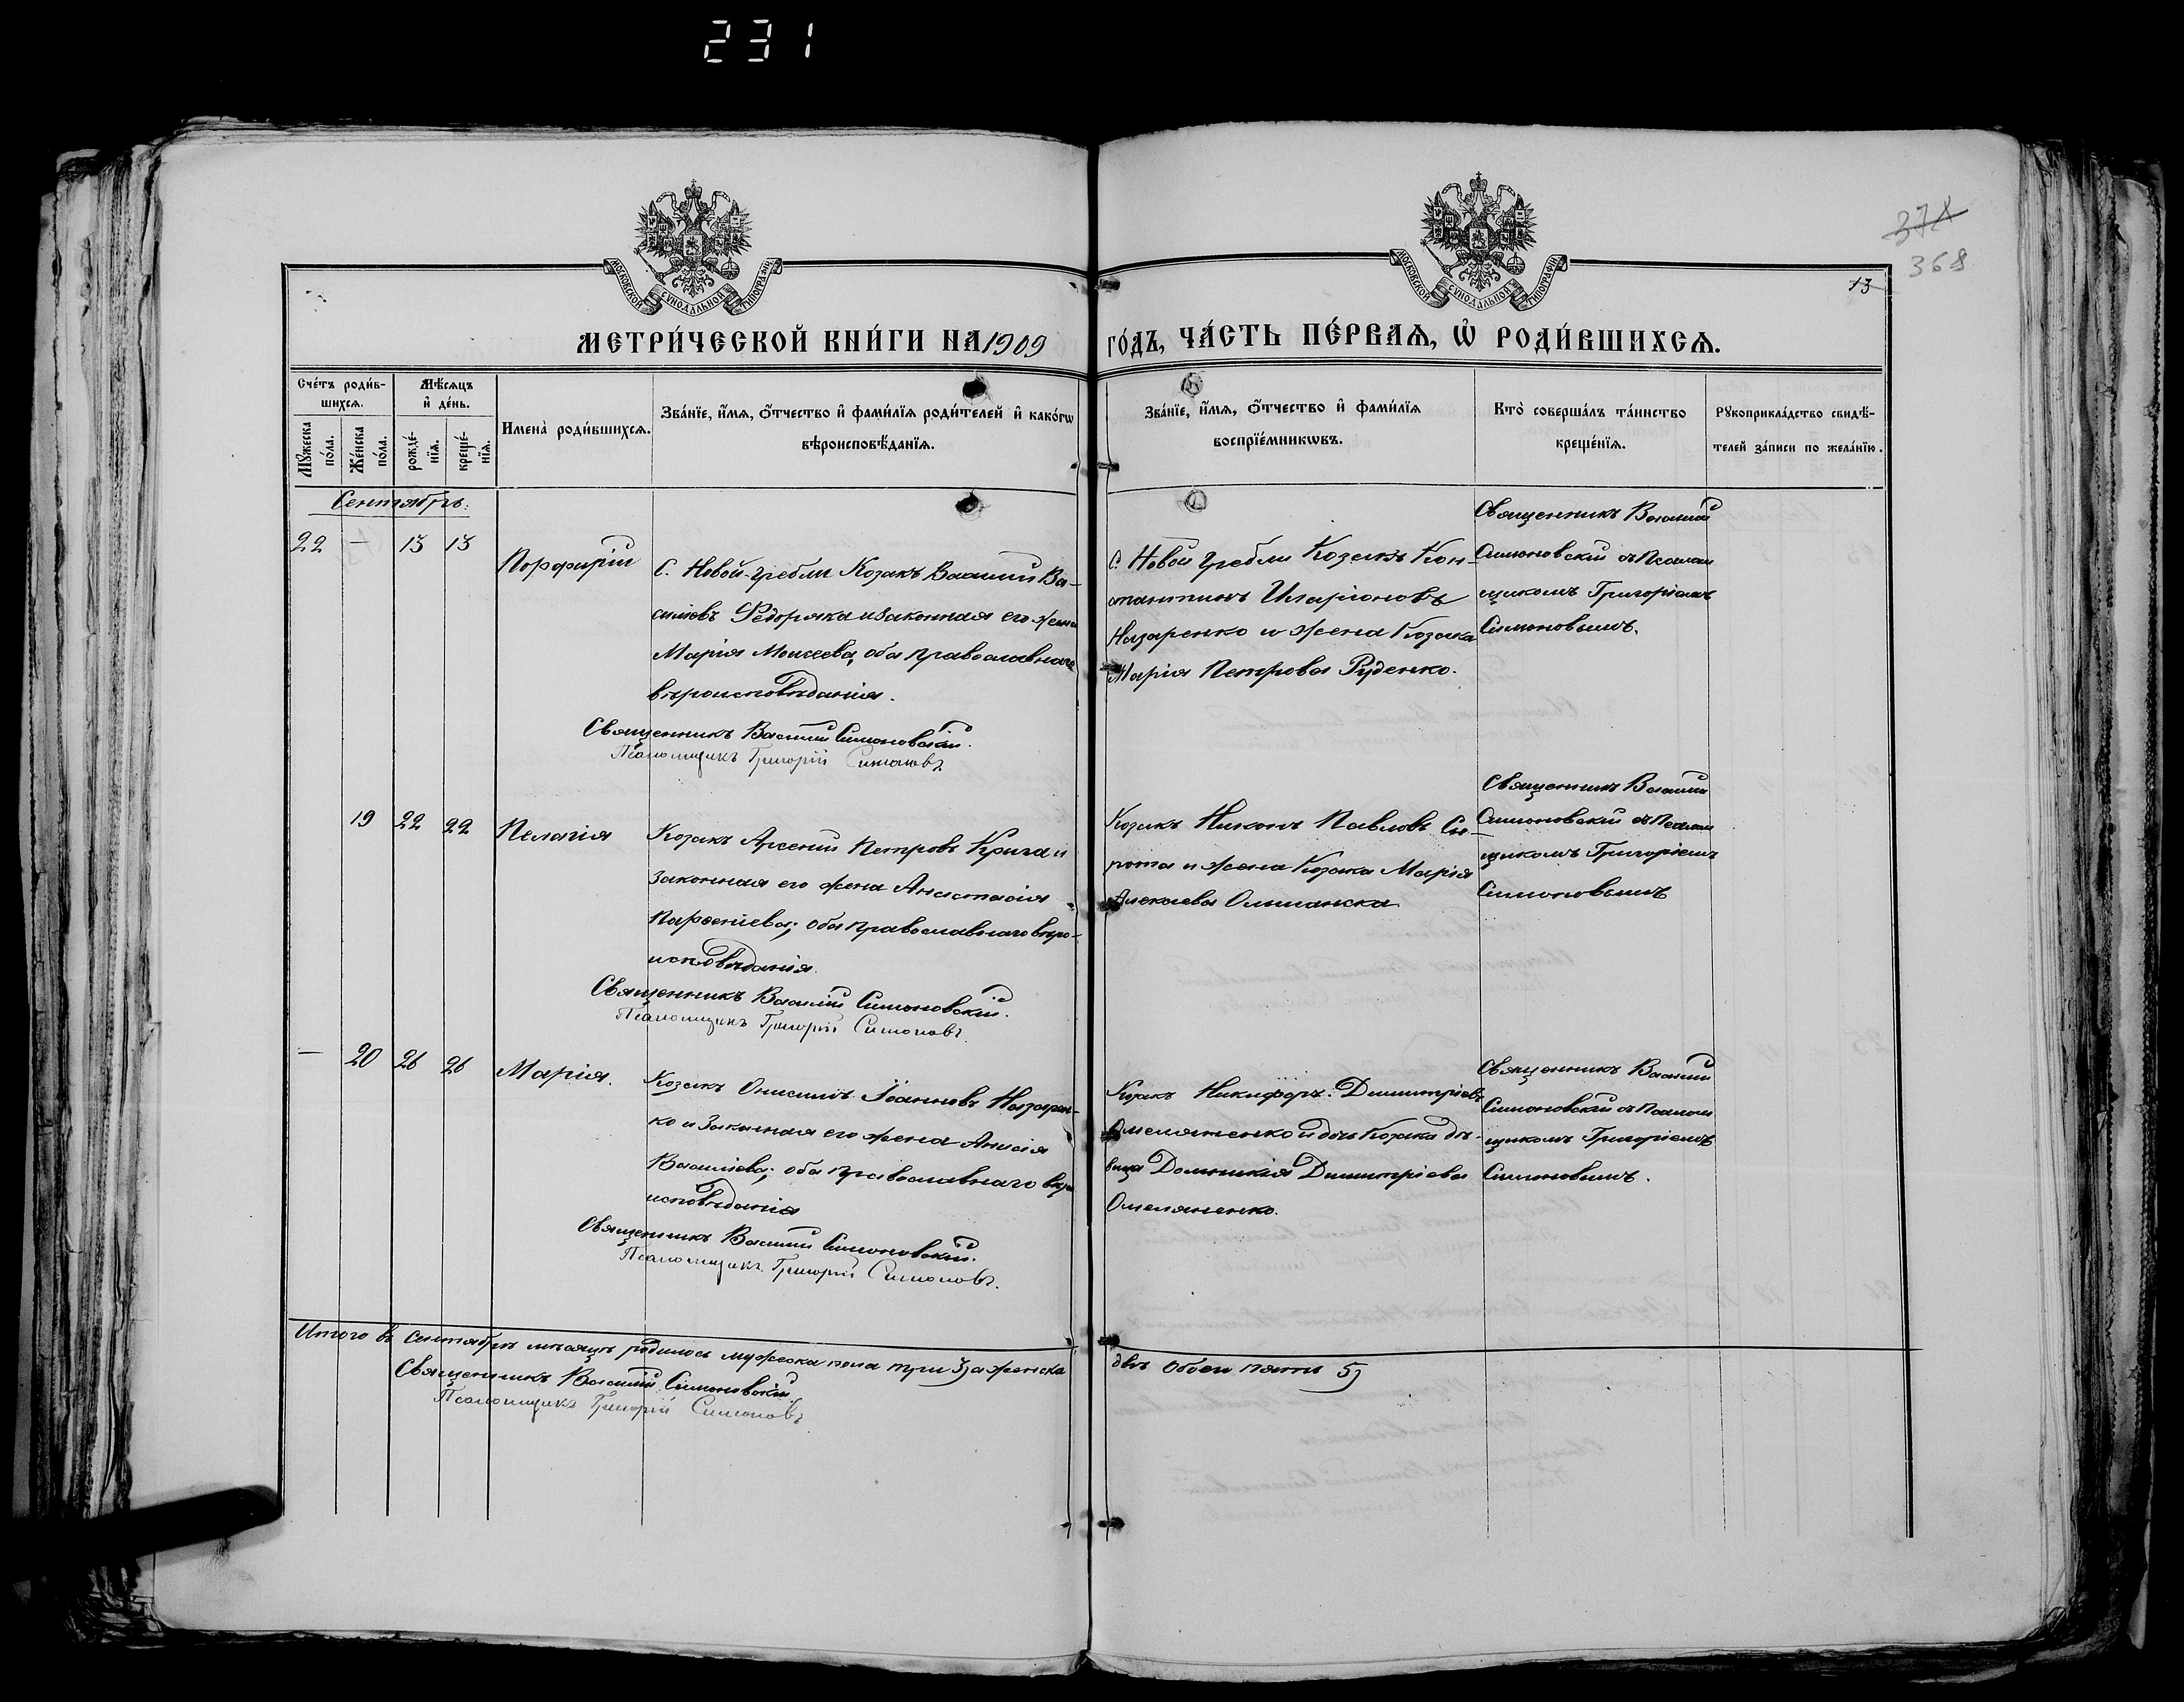 231
374
368
13
МОСКОВСКОЙ СУНОДАЛЬНОЙ ТИПОГРАФІИ
МОСКОВСКОЙ СУНОДАЛЬНОЙ ТИПОГРАФІИ
МЕТРИ́ЧЕСКОЙ КНИ́ГИ НА 1909 ГО́ДЪ, ЧА́СТЬ ПЕ́РВАѦ, Ѡ҆ РОДИ́ВШИХСѦ.
Сче́тъ роди́в-
шихсѧ.
Мꙋ́жеска по́ла.
Же́нска по́ла.
Мѣ́сѧцъ
и҆ де́нь.
рожде́-
нїѧ.
креще́-
нїѧ.
Имена̀ роди́вшихсѧ.
Зва́нїе, и҆́мѧ, ѻ҆́тчество и҆ фами́лїѧ роди́телей и҆ како́гѡ
вѣроисповѣ́данїѧ.
Зва́нїе, и҆́мѧ, ѻ҆́тчество и҆ фами́лїѧ
воспрїе́мникѡвъ.
Кто̀ соверша́лъ та́инство
креще́нїѧ.
Рꙋкоприкла́дство свидѣ́-
телей за́писи по жела́нїю.
Сентябрь.
22 — 13 13
Порфирій
С. Новой-гребли Козакъ Василій Ва-
силіевъ Федоряка и законная его жена
Марія Моисеева, оба православнаго
вѣроисповѣданія.
Священникъ Василій Симоновскій.
Псаломщикъ Григорій Симоновъ.
С. Новой гребли Козакъ Кон-
стантинъ Иларіоновъ
Назаренко и жена Козака
Марія Петрова Руденко.
Священникъ Василій
Симоновскій съ Псалом
щикомъ Григоріемъ
Симоновымъ.
19 22 22
Пелагія
Козакъ Арсеній Петровъ Крига и
законная его жена Анастасія
Парѳеніева; оба православнаго вѣро-
исповѣданія.
Священникъ Василій Симоновскій.
Псаломщикъ Григорій Симоновъ.
Козакъ Никонъ Павловъ Си-
рота и жена Козака Марія
Алексіева Ольшанска
Священникъ Василій
Симоновскій съ Псалом
щикомъ Григоріемъ
Симоновымъ
— 20 26 26
Марія.
Козакъ Онисимъ Іоанновъ Назарен-
ко и Законная его жена Анисія
Василіева; оба православнаго вѣро
исповѣданія
Священникъ Василій Симоновскій.
Псаломщикъ Григорій Симоновъ.
Козакъ Никифоръ Димитріевъ
Омеляненко и дочь Козака дѣ-
вица Домникія Димитріева
Омеляненко.
Священникъ Василій
Симоновскій съ Псалом
щикомъ Григоріемъ
Симоновымъ.
Итого въ сентябрѣ мѣсяцѣ родилось мужеска пола три 3) а женска двѣ обоего пять 5)
Священникъ Василій Симоновскій
Псаломщикъ Григорій Симоновъ